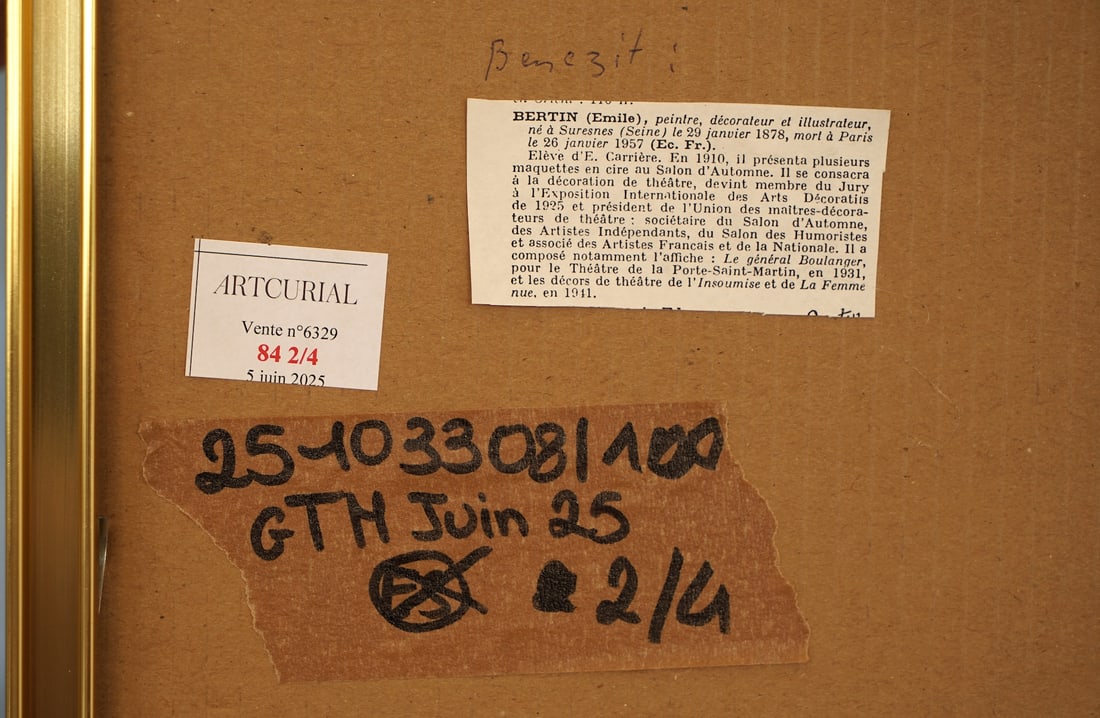 Benezit :
BERTIN (Emile), peintre, décorateur et illustrateur,
né à Suresnes (Seine) le 29 janvier 1878, mort à Paris
le 26 janvier 1957 (Ec. Fr.).
Elève d'E. Carrière. En 1910, il présenta plusieurs
maquettes en cire au Salon d'Automne. Il se consacra
à la décoration de théâtre, devint membre du Jury
à l'Exposition Internationale des Arts Décoratifs
de 1925 et président de l'Union des maîtres-décora-
teurs de théâtre : sociétaire du Salon d'Automne,
des Artistes Indépendants, du Salon des Humoristes
et associé des Artistes Francais et de la Nationale. Il a
composé notamment l'affiche : Le général Boulanger,
pour le Théâtre de la Porte-Saint-Martin, en 1931,
et les décors de théâtre de l'Insoumise et de La Femme
nue, en 1941.
ARTCURIAL
Vente n°6329
84 2/4
5 juin 2025
25-103308/1
GTM Juin 25
2/4